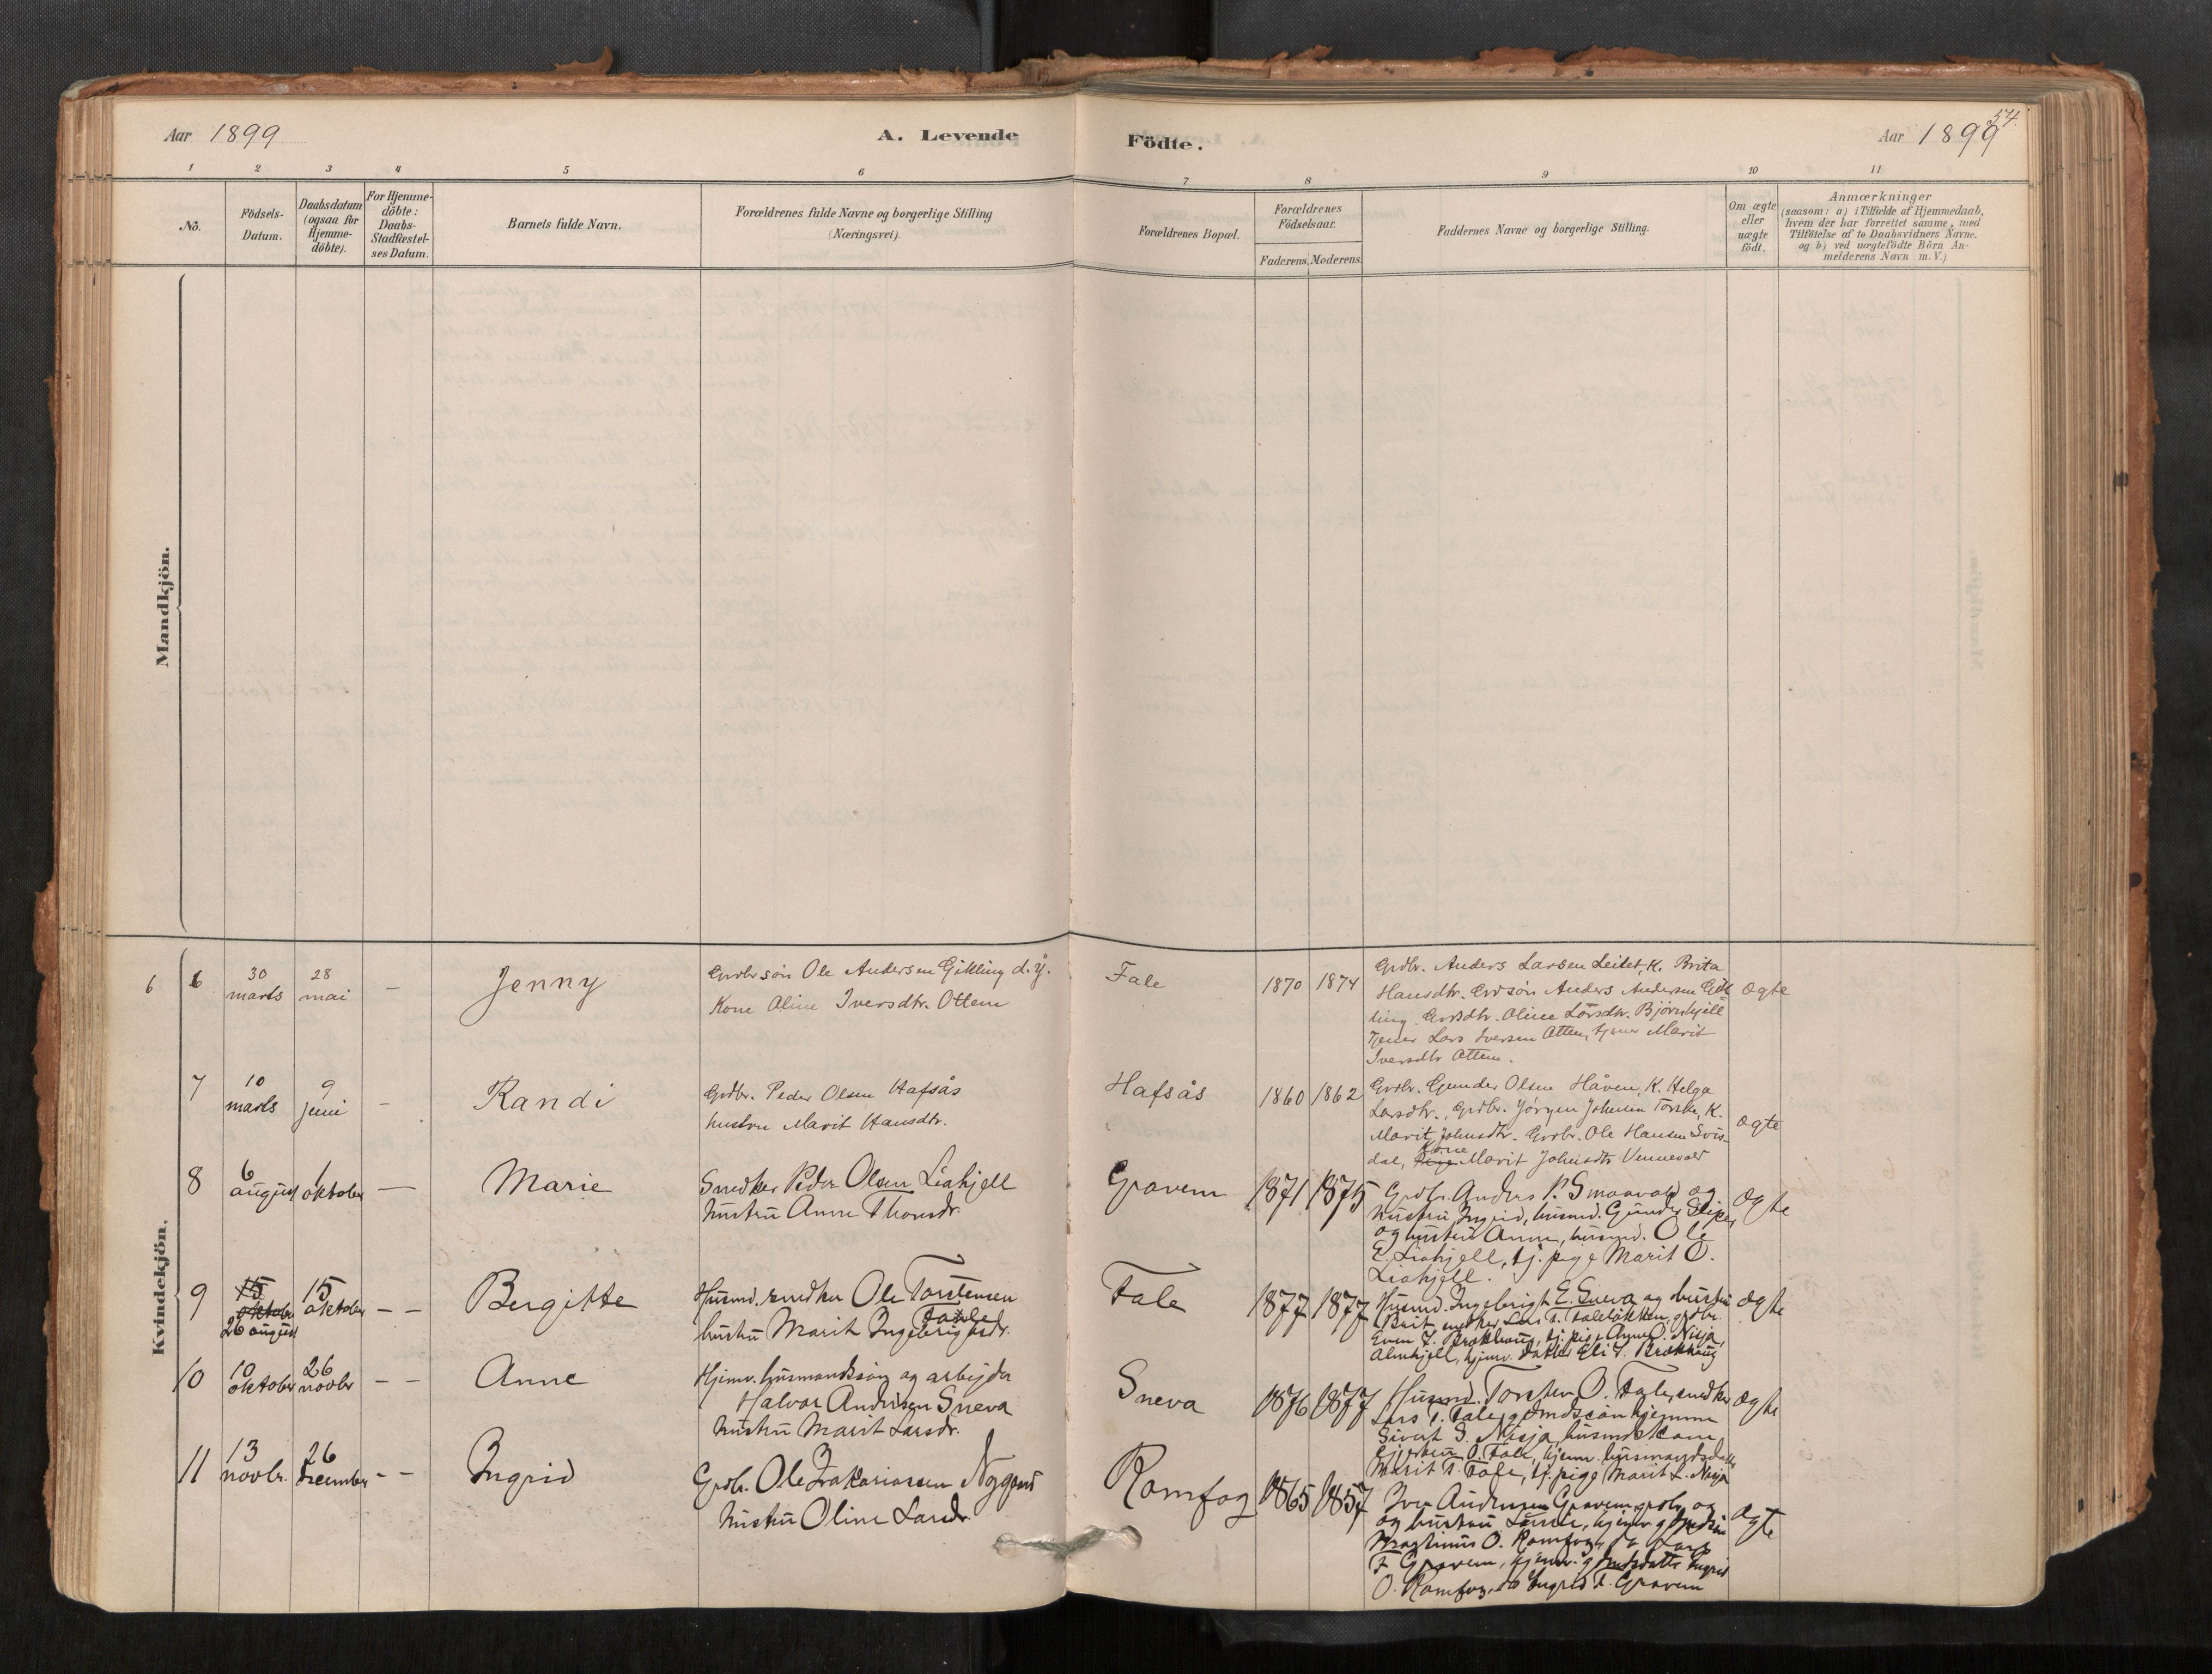 Aar 1899
A. Levende
Födte.
Aar 1899
54.
1 2 3 4 5 6 7 8 9 10 11
No.
Födsels-
Datum.
Daabsdatum
(ogsaa for
Hjemme-
döbte).
For Hjemme-
döbte:
Daabs-
Stadfæstel-
ses Datum.
Barnets fulde Navn.
Forældrenes fulde Navne og borgerlige Stilling
(Næringsvei).
Forældrenes Bopæl.
Forældrenes
Födselsaar.
Faderens. Moderens.
Faddernes Navne og borgerlige Stilling.
Om ægte
eller
uægte
födt.
Anmærkninger
(saasom: a) i Tilfælde af Hjemmedaab,
hvem der har forrettet samme, med
Tilföielse af to Daabsvidners Navne.
og b) ved uægtefödte Börn An-
melderens Navn m.V.)
Mandkjön.
Kvindekjön.
6 6
30
marts
28
mai
–
Jenny
Grdbrsön Ole Andersen Gikling d. y.
Kone Oline Iversdtr. Ottem
Fale
1870 1874
Grdbr. Anders Larsen Leitet, K. Brita
Hansdtr. Grdsön Anders Andersen Gik
ling. Grdsdtr. Oline Larsdtr. Björnhjell
Tjener Lars Iversen Ottem, tjener Marit
Iversdtr Ottem.
ægte
7
10
marts
9
juni
–
Randi
Grdbr. Peder Olsen Hafsås
hustru Marit Hansdtr.
Hafsås
1860 1862
Grdbr. Gunder Olsen Håven, K. Helga
Larsdtr., Grdbr. Jörgen Johnsen Torske, K.
Marit Johnsdtr. Grdbr. Ole Hansen Svis-
dal, Kone Marit Johnsdtr Vennevold
ægte
8
6
august
1
oktober
–
Marie
Snedker Peder Olsen Liahjell
hustru Anne Thorsdr.
Gravem
1871 1875
Grdbr. Anders P. Smaavold og
hustru Ingrid, husmd. Gunder Sliper
og hustru Anne, husmd. Ole
E. Liahjell, tj. pige Marit O.
Liahjell.
ægte
9
15
oktober
26 august
15
oktober
– –
Bergitte
Husmd. snedker Ole Torstensen
Fale
hustru Marit Ingebrigtsdr.
Fale
1877 1877
Husmd. Ingebrigt E. Sneva og hustru
Brit snedker Lars T. Faleløkken, grdbr.
Even I. Brækhaug, tj. pige Anne O. Nisja,
Almhjell, hjemv. datter Eli I. Brækhaug
ægte
10
10
oktober
26
novbr
– –
Anne
Hjemv. husmandssön og arbejder
Halvor Andersen Sneva
hustru Marit Larsdr.
Sneva
1876 1877
Husmd. Torsten O. Fale, snedker
Lars T. Fale, gmdssön hjemme
Sivert S. Nisja, husmdskone
O. Fale, hjemv. husmandsdatter
Marit T. Fale, tj. pige Marit L. Nisja
ægte
11
13
novbr.
26
December
– –
Ingrid
Grdb. Ole Zakariassen Nygaard
hustru Oline Larsdr.
Romfog
1865 1857
Iver Andersen Gravem grdbr og
og hustru hjemv gmdssön
Magnus O. Romfog, do Lars
F. Gravem, hjemv. gmdsdatter Ingrid
O. Romfog, do Ingrid F. Gravem
ægte